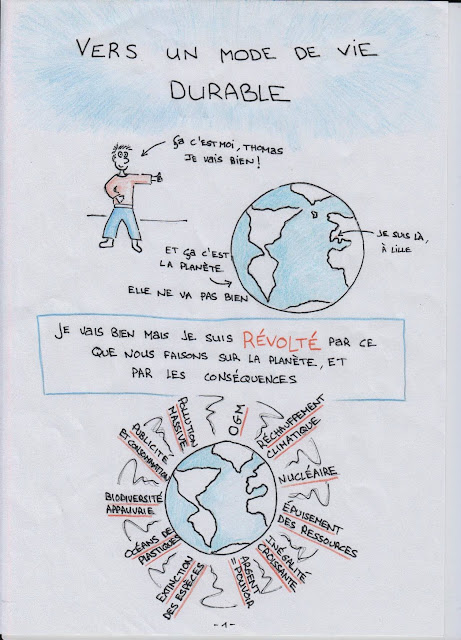 VERS UN MODE DE VIE
DURABLE
ÇA C'EST MOI, THOMAS
JE VAIS BIEN !
JE SUIS LÀ,
À LILLE
ET ÇA C'EST
LA PLANÈTE
ELLE NE VA PAS BIEN
JE VAIS BIEN MAIS JE SUIS RÉVOLTÉ PAR CE
QUE NOUS FAISONS SUR LA PLANÈTE, ET
PAR LES CONSÉQUENCES
OGM
RÉCHAUFFEMENT
CLIMATIQUE
NUCLÉAIRE
ÉPUISEMENT
DES RESSOURCES
INÉGALITÉ
CROISSANTE
ARGENT
=
POUVOIR
EXTINCTION
DES ESPÈCES
OCÉANS DE
PLASTIQUES
BIODIVERSITÉ
APPAUVRIE
PUBLICITÉ
ET CONSOMMATION
POLLUTION
MASSIVE
-1-